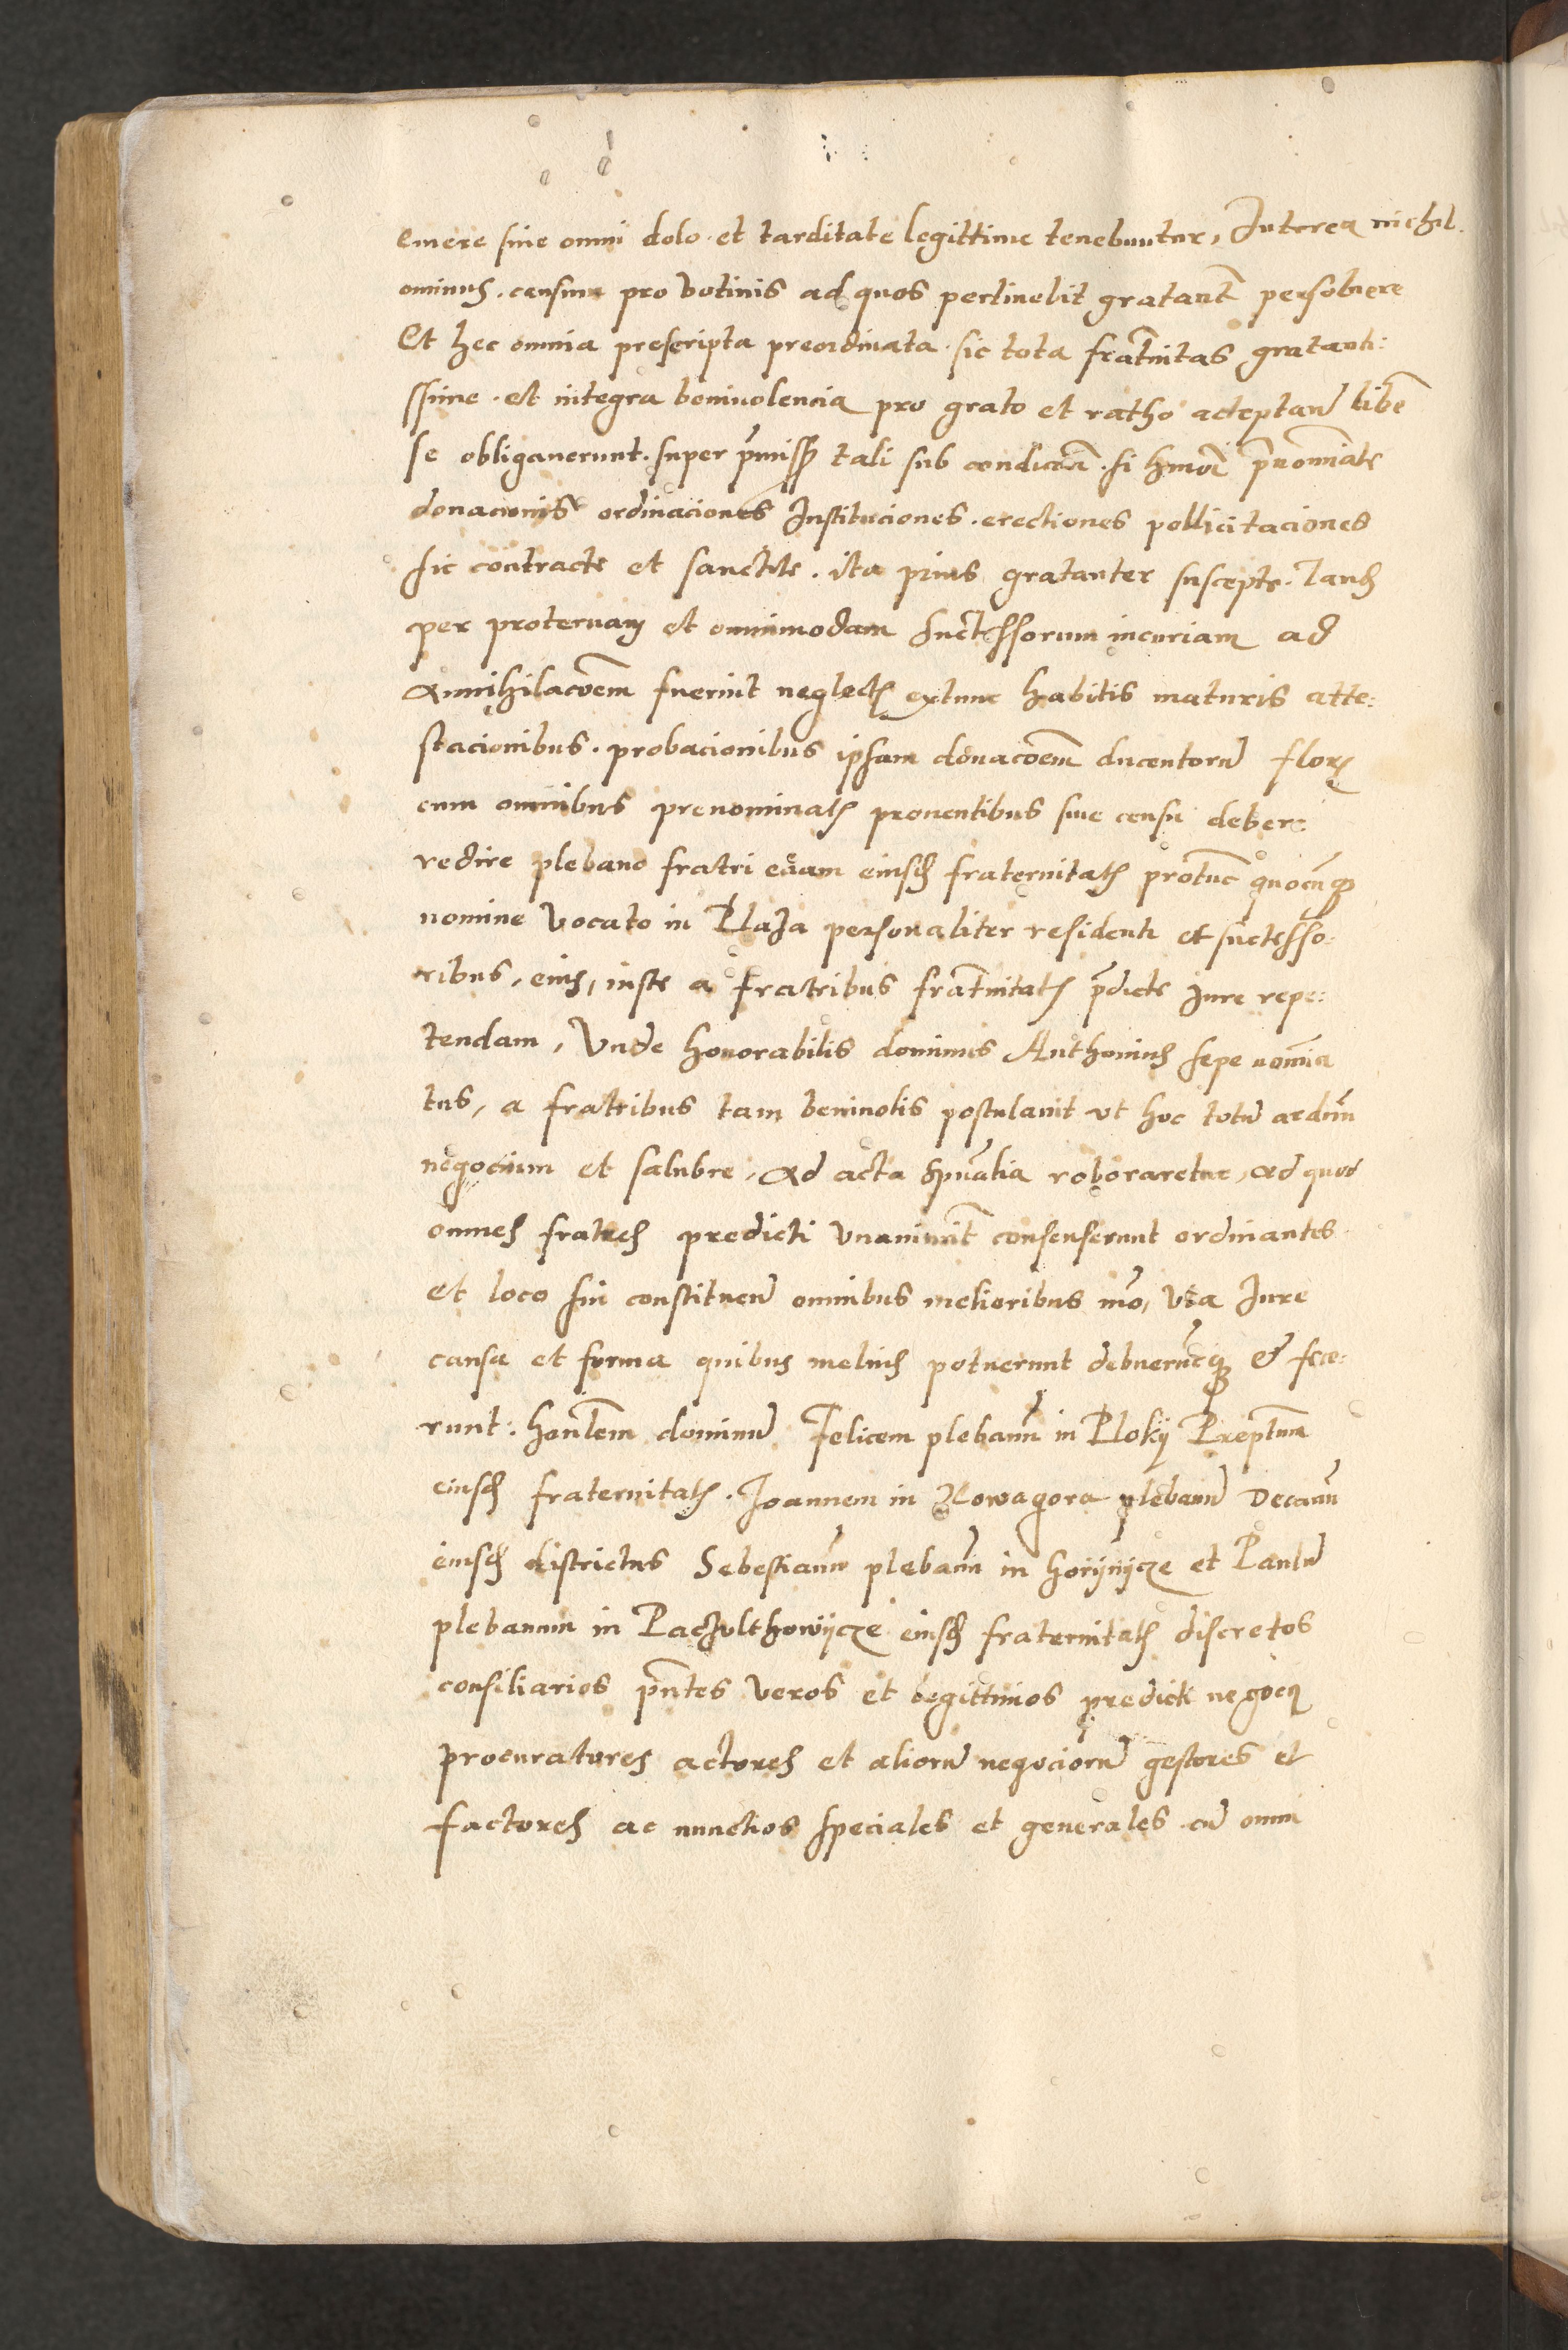 emere sine omni dolo. et tarditate legittime tenebuntur, Interea nichil.
ominus. censum pro votivis ad quos pertinebit gratant̃ persolvere
Et hec omnia prescripta preordinata. sic tota frat̃nitas gratanti:
ssime. et integra benivolencia pro grato et ratho acceptan̄ libẽ
se obligaverunt. super p̃miss tali sub condic̃oẽ. si hmõi p̃noĩate
donaciones ordinaciones Instituciones. erectiones pollicitaciones
sic contracte et sanctite. ita prius gratanter suscepte. Tand̃
per protervam et omnimodam successorum incuriam ad
annihilac̃oem fuerint neglectꝭ extunc habitis maturis atte:
stacionibus. probacionibus ipsam donac̃oem ducentorũ florꝭ
cum omnibus prenominatꝭ proventibus sive censu debere:
redire plebano fratri eciam eiusd̃ fraternitatꝭ protũc quocũqꝫ
nomine vocato in Plaza personaliter residenti et successo:
ribus, eius, iuste a fratribus frat̃nitatꝭ p̃dicte Iure repe:
tendam, Unde honorabilis dominus Anthonius sepe noĩa
tus, a fratribus tam benivolis postulavit ut hoc totũ arduũ
negocium et salubre, ad acta spũalia roboraretur, ad quod
omnes fratres predicti unanimit̃ consenserunt ordinantes
et loco sui constituen̄ omnibus melioribus mõ, via Iure
causa et forma quibus melius potuerunt debuerũtqꝫ & fece:
runt: honlem dominũ Felicem plebanũ in Ploky Preptum
eiusd̃ fraternitatꝭ. Joannem in Nowagora plebanũ Decanũ
eiusd̃ districtus Sebestianũ plebanũ in horijnijcze et Paulũ
plebanum in Paczolthowijcze eiusd̃ fraternitatꝭ discretos
consiliarios p̃ntes veros et legittimos predicti negocij
procuratores actores et aliorũ negociorũ gestores et
factores ac nunctios speciales et generales cũ omni